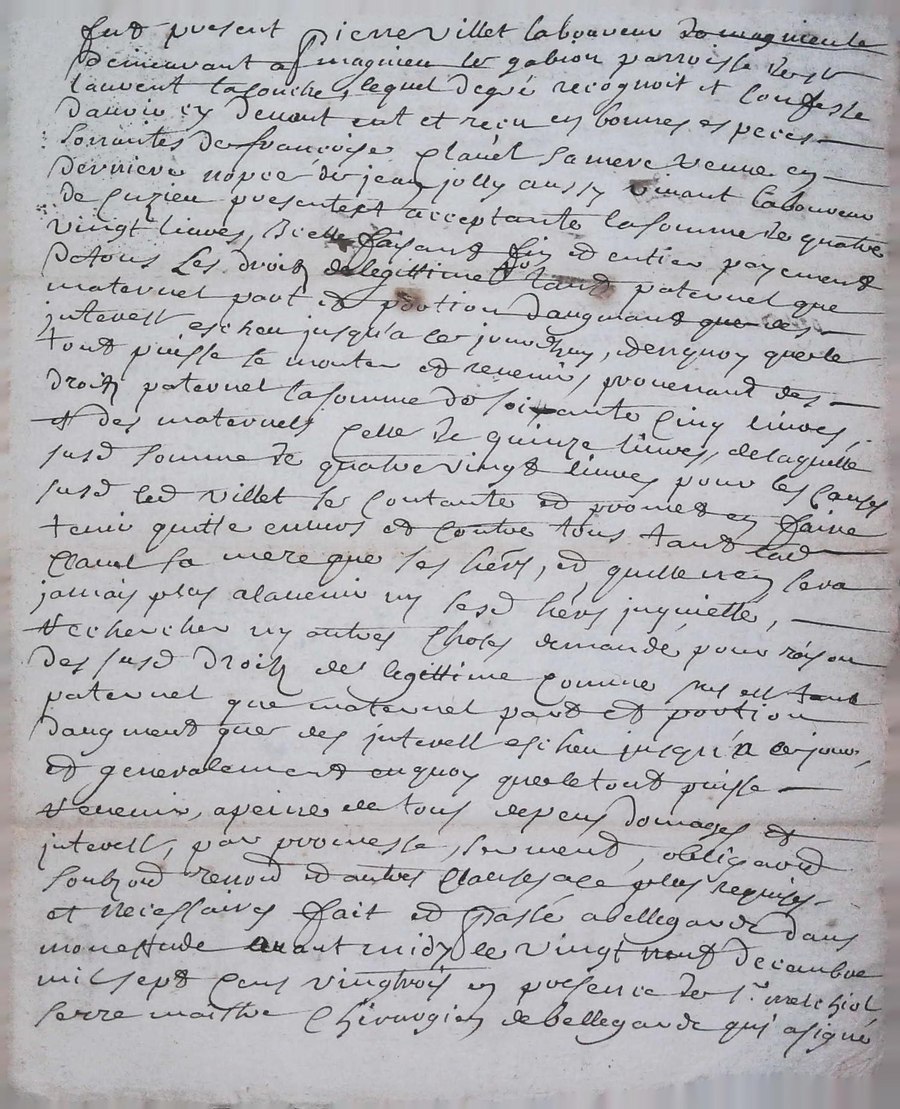 fut present Pierre villet laboureur
demeurant a magnieu le gabion parroisse de st
laurent lasouche, lequel degré recognoit et confesse
d'avoir cy devant eut et reçu en bonnes especes
sorrantes de françoise clavel sa mere veuve en
derniere nopce de jean jolly aussy vivant laboureur
de cuzieu presente et acceptante la somme de quatre
vingt livres, faisant fin et entier payement
de tous les droitz de legittime tant paternel que
maternel part et portion d'augmant que des
interest escheu jusqu'a ce jourdhuy, et enquoy que le
tout puisse se monter et revenir, provenant des
droitz paternel la somme de soixante cinq livres,
et des maternels celle de quinze livres, de laquelle
susd somme de quatre vingt livres pour les causes
susd led villet se contante et promet en faire
tenir quitte envers et contre tous tant lad
clavel sa mere que ses hérs, et quelle n'en sera
jamais plus a l'avenir ny sesd hérs inquietté,
rechercher ny autres choses demandé, pour raison
des susd droitz de legittime comme sus est tant
paternel que maternel part et portion
daugment que des interest escheu jusqu'a ce jour,
et generalement enquoy que le tout puisse
revenir, a peine de tous depens domages et
interest, par promesse, serment, obligaond
soubzond renond et autres clauses a ce plus requises
et necessaires fait et passé a bellegarde dans
mon estude avant midy le vingt neuf decembre
mil sept cens vingtrois en presence de sr. melchiol
serre maistre chirurgien de bellegarde qui a signé